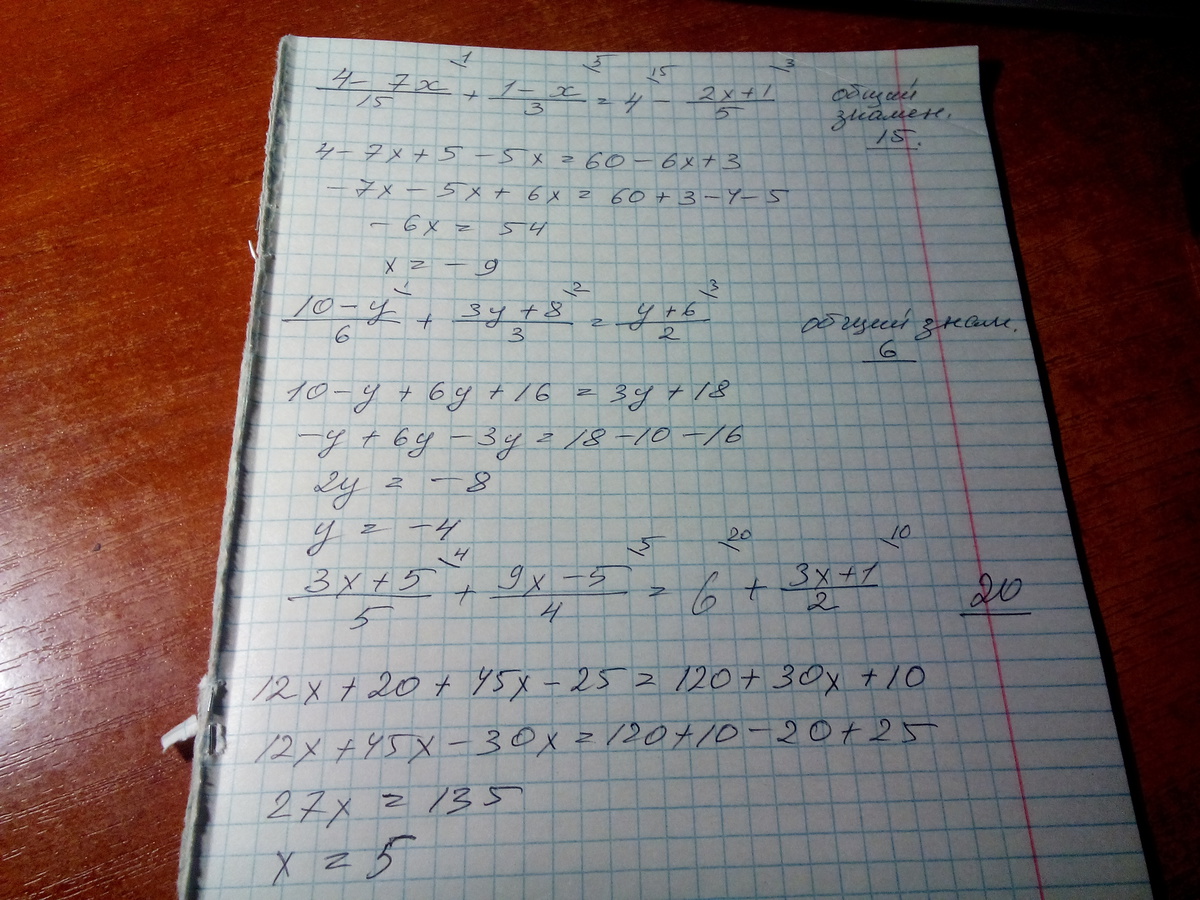 (4 - 7x)/15 ⌵1 + (1 - x)/3 ⌵5 = 4 ⌵15 - (2x+1)/5 ⌵3 общий
знамен.
15.
4 - 7x + 5 - 5x = 60 - 6x + 3
- 7x - 5x + 6x = 60 + 3 - 4 - 5
- 6x = 54
x = - 9
(10 - y)/6 ⌵1 + (3y + 8)/3 ⌵2 = (y + 6)/2 ⌵3 общий знам.
6
10 - y + 6y + 16 = 3y + 18
-y + 6y - 3y = 18 - 10 - 16
2y = - 8
y = - 4
(3x + 5)/5 ⌵4 + (9x - 5)/4 ⌵5 = 6 ⌵20 + (3x+1)/2 ⌵10 20
12x + 20 + 45x - 25 = 120 + 30x + 10
12x + 45x - 30x = 120 + 10 - 20 + 25
27x = 135
x = 5